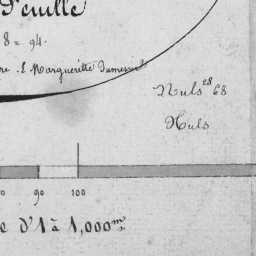 Feuille
8 = 94.
re. L. Marguerite Dumesnil
Nuls es 68
Nuls
90 100
e d'1 à 1,000m.